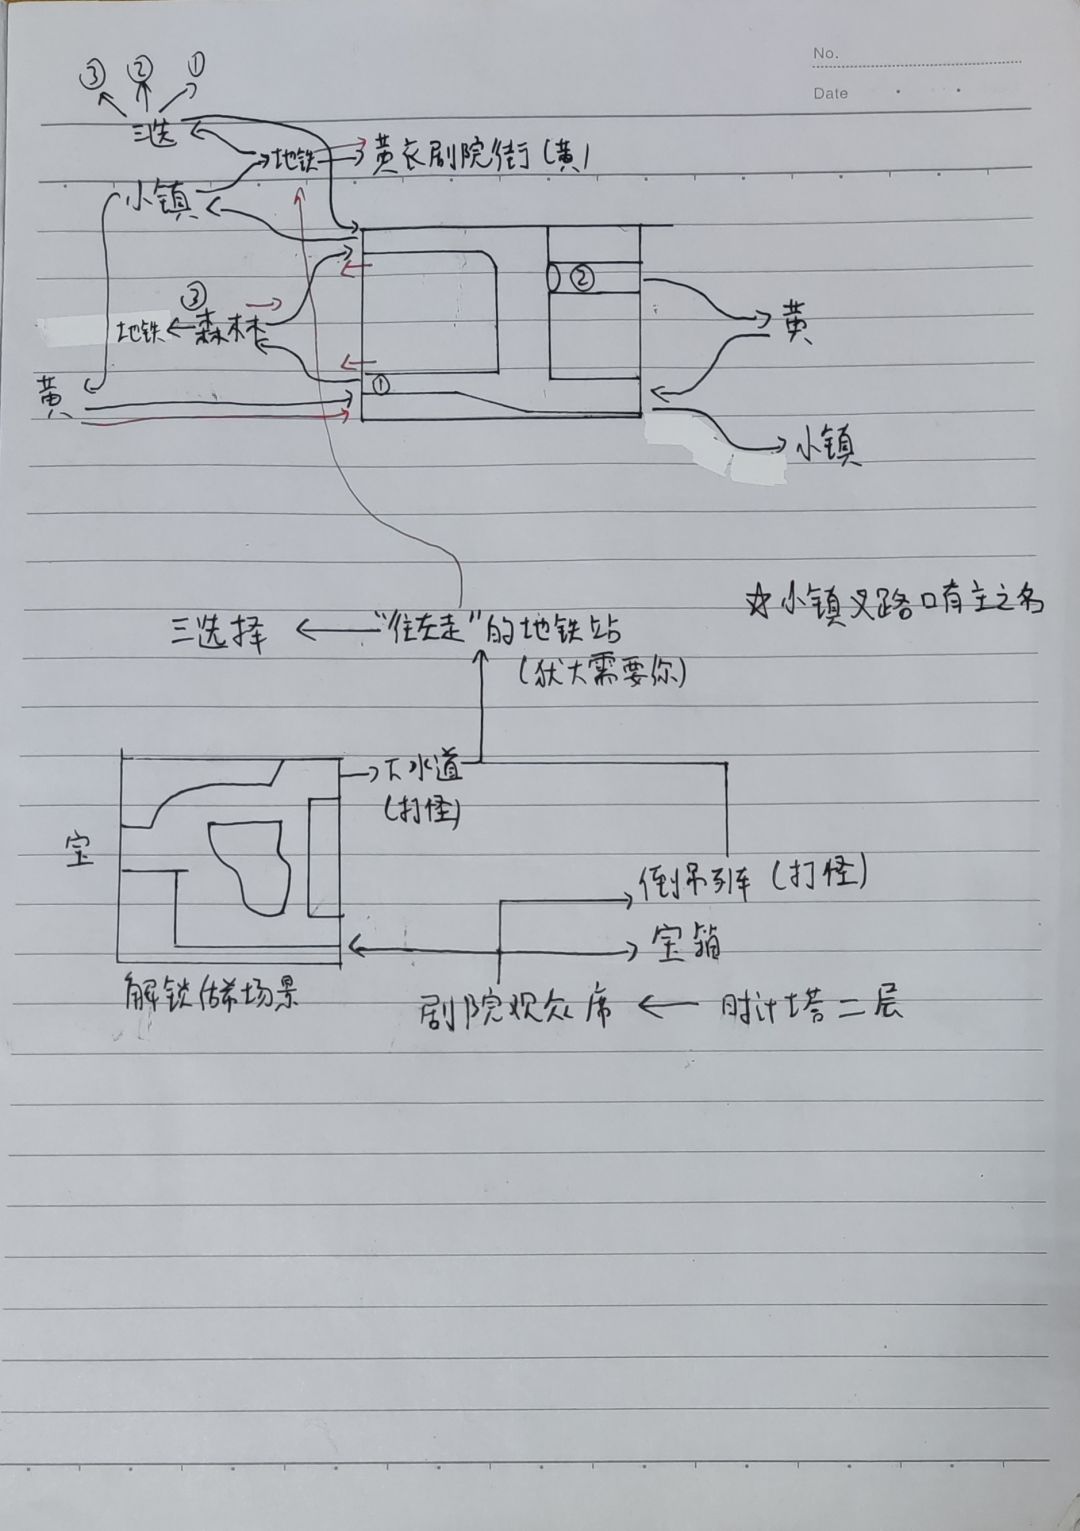 No.
Date
③ ② ①
三选
地铁
黄衣剧院街（黄）
小镇
②
③
地铁
森林
黄
黄
①
小镇
☆小镇叉路口有主之名
三选择
“往左走”的地铁站
（犹大需要你）
下水道
（打怪）
宝
倒吊列车（打怪）
宝箱
解锁
场景
剧院观众席
时计塔二层